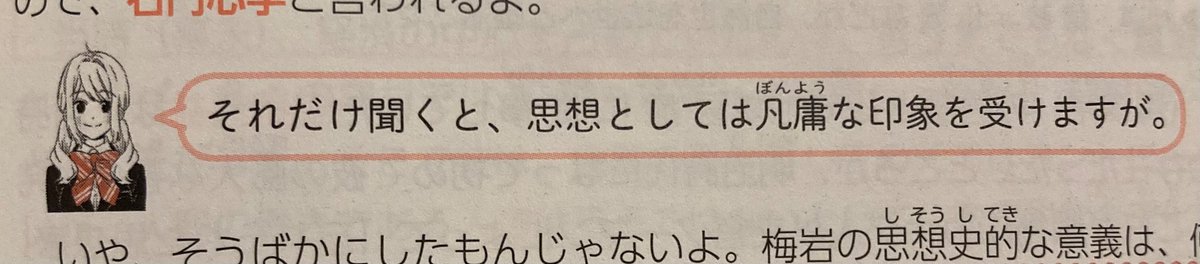 ので、石門心学と言われるよ。
それだけ聞くと、思想としては凡庸な印象を受けますが。
いや、そうばかにしたもんじゃないよ。梅岩の思想史的な意義は、